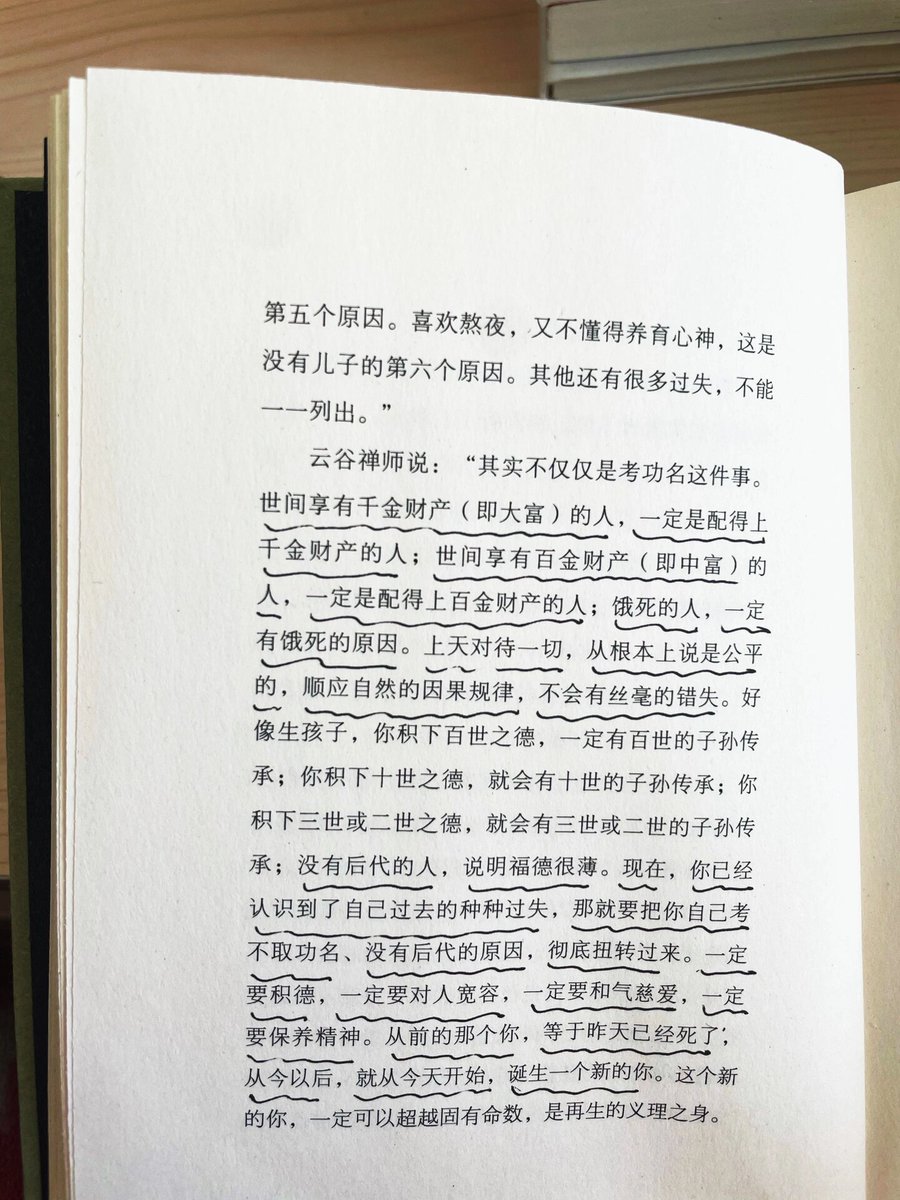 第五个原因。喜欢熬夜，又不懂得养育心神，这是
没有儿子的第六个原因。其他还有很多过失，不能
一一列出。”
云谷禅师说：“其实不仅仅是考功名这件事。
世间享有千金财产（即大富）的人，一定是配得上
千金财产的人；世间享有百金财产（即中富）的
人，一定是配得上百金财产的人；饿死的人，一定
有饿死的原因。上天对待一切，从根本上说是公平
的，顺应自然的因果规律，不会有丝毫的错失。好
像生孩子，你积下百世之德，一定有百世的子孙传
承；你积下十世之德，就会有十世的子孙传承；你
积下三世或二世之德，就会有三世或二世的子孙传
承；没有后代的人，说明福德很薄。现在，你已经
认识到了自己过去的种种过失，那就要把你自己考
不取功名、没有后代的原因，彻底扭转过来。一定
要积德，一定要对人宽容，一定要和气慈爱，一定
要保养精神。从前的那个你，等于昨天已经死了；
从今以后，就从今天开始，诞生一个新的你。这个新
的你，一定可以超越固有命数，是再生的义理之身。